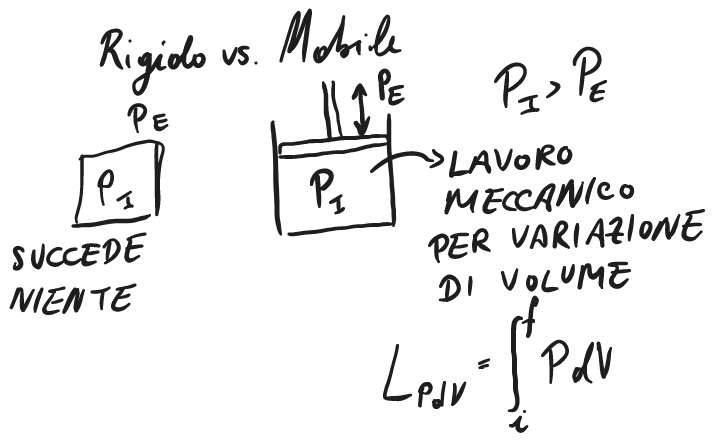 Rigido vs. Mobile
P_E
P_I
SUCCEDE
NIENTE
P_E
P_I
P_I > P_E
LAVORO
MECCANICO
PER VARIAZIONE
DI VOLUME
L_PdV = ∫_i^f PdV